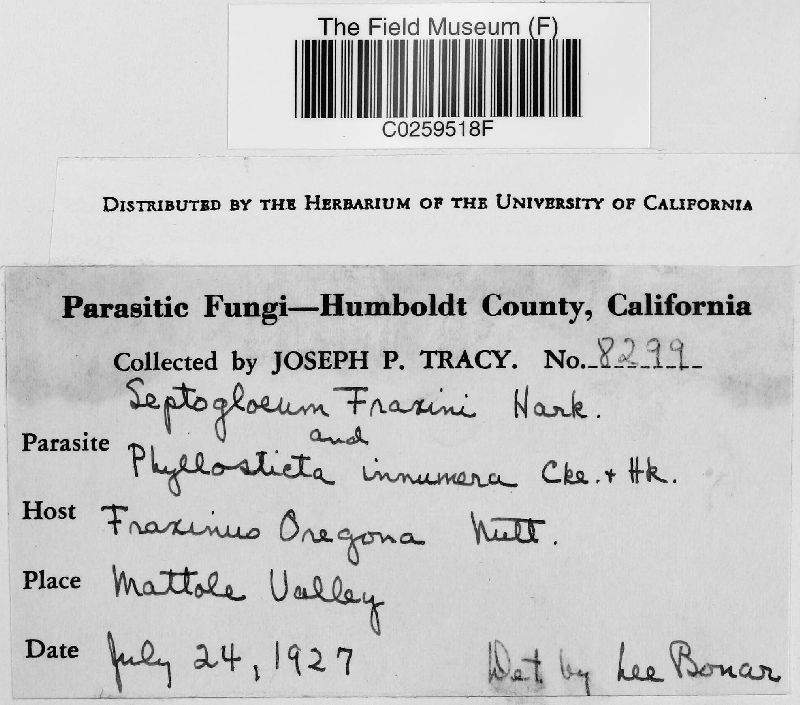 The Field Museum (F)
C0259518F
DISTRIBUTED BY THE HERBARIUM OF THE UNIVERSITY OF CALIFORNIA
Parasitic Fungi—Humboldt County, California
Collected by JOSEPH P. TRACY. No. 8299
Septogloeum Fraxini Hark.
Parasite and
Phyllosticta innumera Cke. + Hk.
Host Fraxinus Oregona Nutt.
Place Mattole Valley
Date July 24, 1927 Det by Lee Bonar